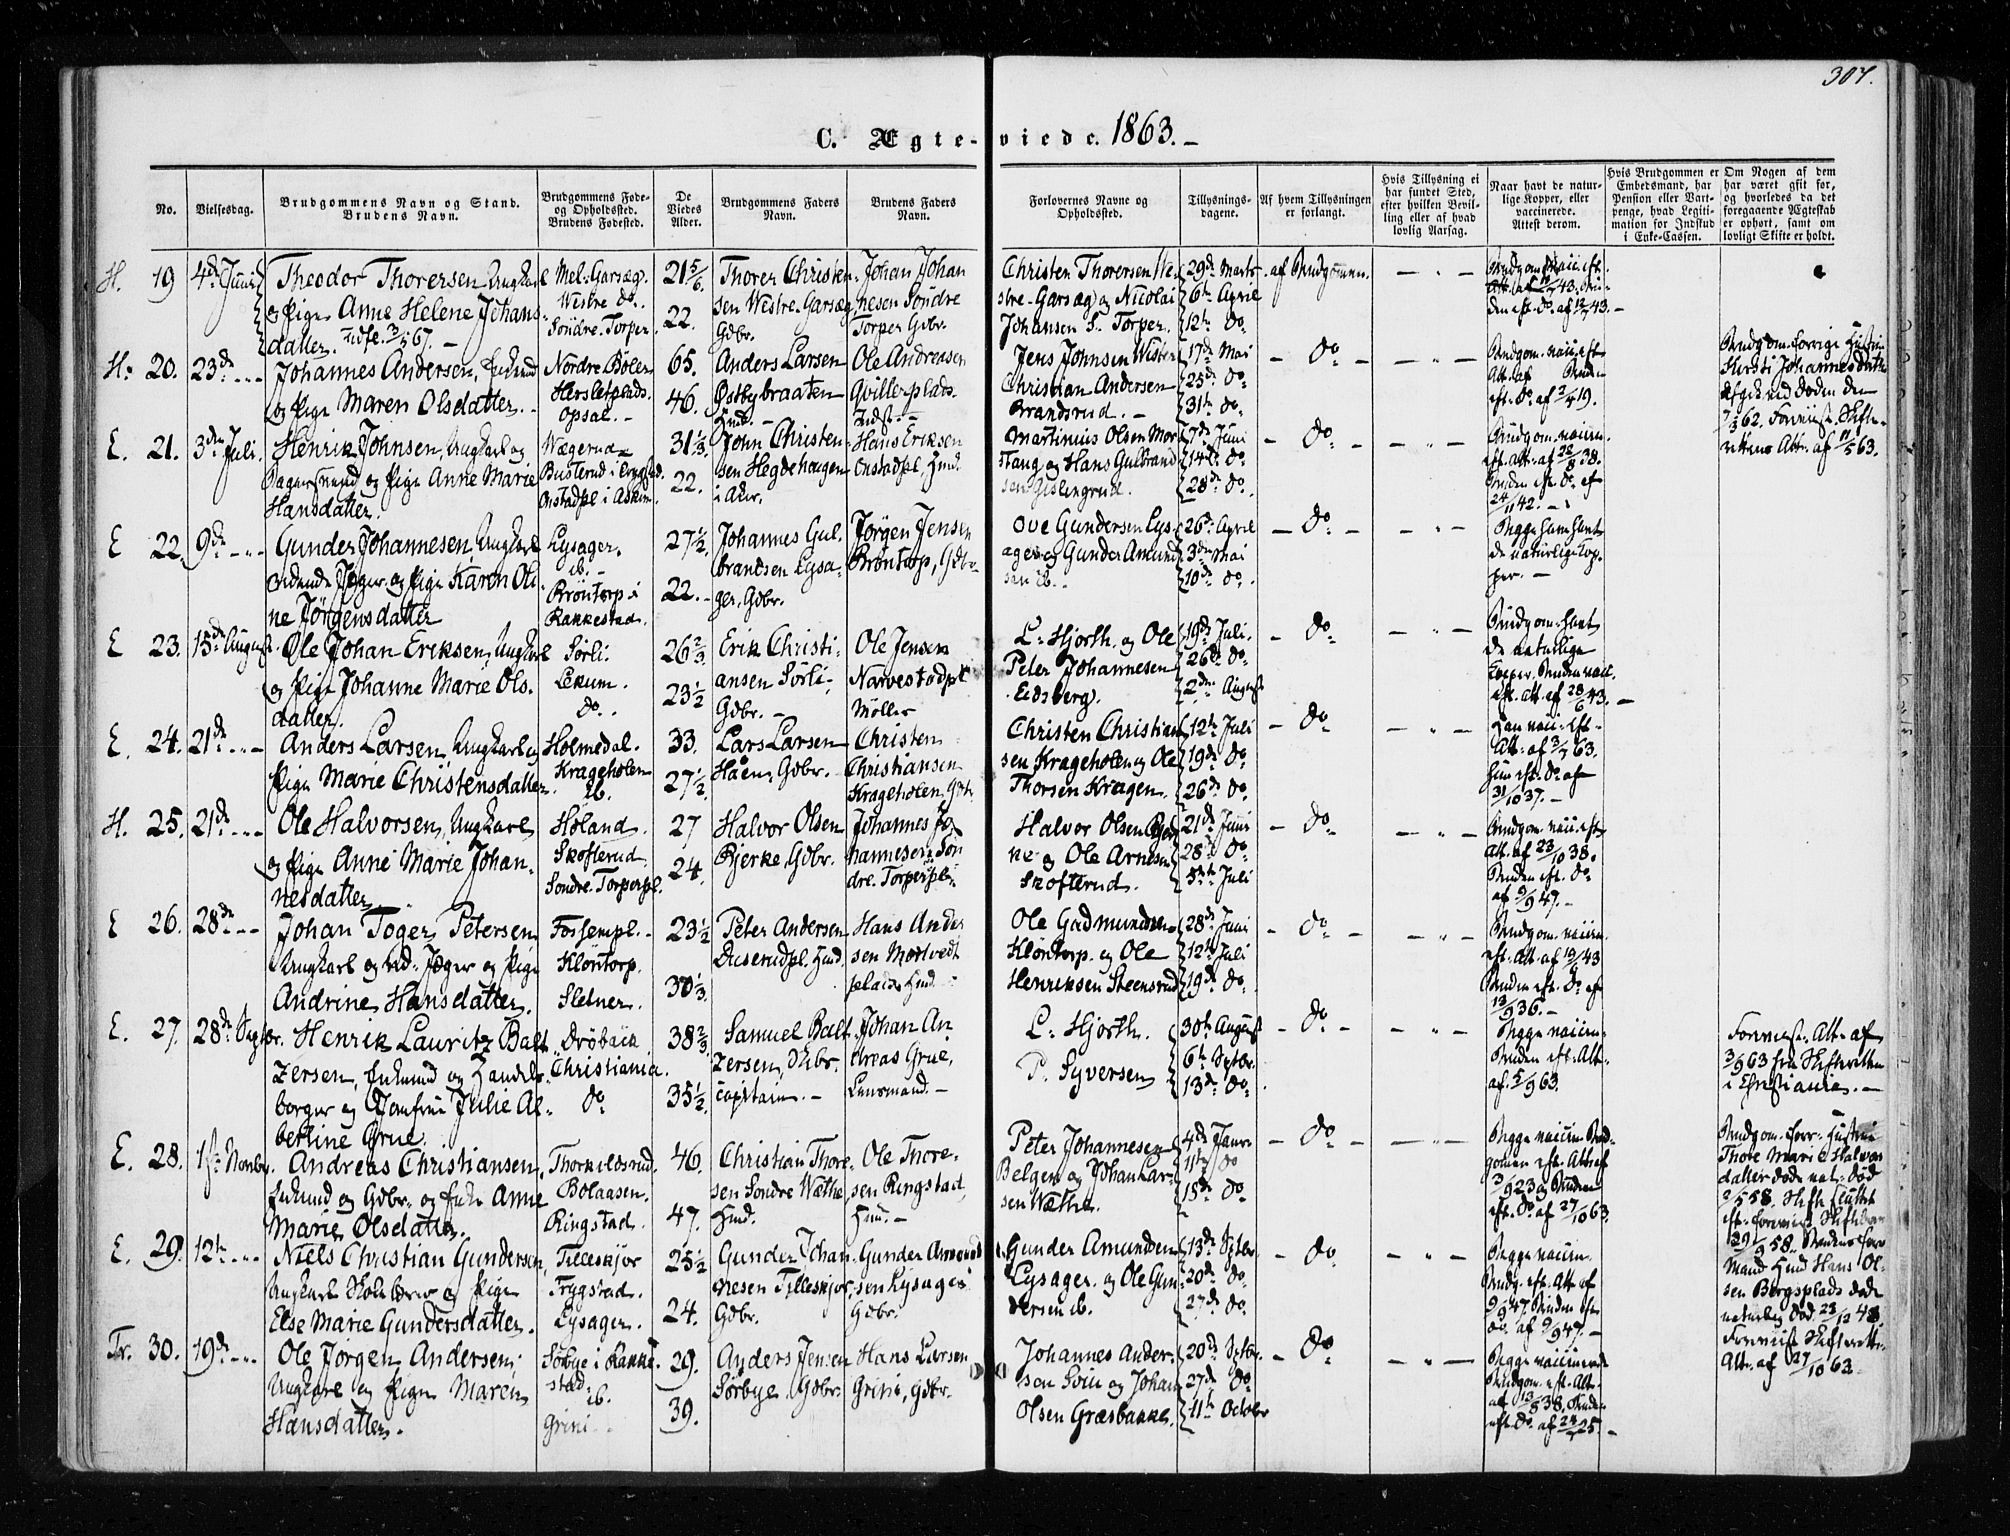 307.
C. Ægte-viede. 1863.-
No.
Vielsesdag.
Brudgommens Navn og Stand.
Brudens Navn.
Brudgommens Føde-
og Opholdssted.
Brudens Fødested.
De
Viedes
Alder.
Brudgommens Faders
Navn.
Brudens Faders
Navn.
Forlovernes Navne og
Opholdssted.
Tillysnings-
dagene.
Af hvem Tillysningen
er forlangt.
Hvis Tillysning ei
har fundet Sted,
efter hvilken Bevil-
ling eller af hvad
lovlig Aarsag.
Naar havt de natur-
lige Kopper, eller
vaccinerede.
Attest derom.
Hvis Brudgommen er
Embedsmand, har
Pension eller Vart-
penge, hvad Legiti-
mation for Indskud
i Enke-Cassen.
Om Nogen af dem
har været gift før,
og hvorledes da det
foregaaende Ægteskab
er ophørt, samt om
lovligt Skifte er holdt.
H. 19 4de Juni
Theodor Thorersen Ungkarl
og Pige Anne Helene Johans-
datter. Udfl. 3/5 67. -
Mel: Garsæg.
Westre do.
Søndre-Torper.
21 5/6
22.
Thorer Christen-
sen Westre-Garsæg
Gdbr.
Johan Johan
nesen Søndre
Torper Gdbr.
Christen Thorersen We-
stre-Garsæg og Nicolai
Johansen S. Torper.
29de Marts
6te April
12te do.
af Brudgommen.
H. 20. 23de
Johannes Andersen, Enkemd
og Pige Maren Olsdatter.
Nordre Bøler
Hersletplads.
Opsal.
65.
46.
Anders Larsen
Østbybraaten
Hmd.
Ole Andreasen
Gvillerplads.
Indst.
Jens Johnsen Wister
Christian Andersen
Brandsrud.
17de Mai
25de do.
31te do.
do.
Brudgom. forrige Hustru
Kirsti Johannesdatter
afgik ved Døden den
7/3 62. Foreviist Skifte-
rettens Att. af 11/5 63.
E. 21. 3die Juli.
Henrik Johnsen, Ungkarl og
Bagersvend og Pige Anne Marie
Hansdatter
Wægerud
Busterud i Trygstad.
Onstadpl i Askim.
31 1/3.
22.
John Christen-
sen Hegdehaugen
i Aker.
Hans Eriksen
Onstadpl, Hmd.
Martinius Olsen Mor
stang og Hans Gulbrand
sen Gislingrud.
7de Juni
14de do.
28de do.
do.
E 22. 9de
Gunder Johannesen Ungkarl
ridende Jæger og Pige Karen Oli-
ne Jørgensdatter
Lysager.
ib.
Brøntorp i
Rakkestad.
27 1/2.
22.
Johannes Gul-
brandsen Lysa-
ger, Gdbr.
Jørgen Jensen
Brøntorp, Gdbr.
Ove Gundersen Lys-
ager og Gunder Amund
sen ib.
26de April
3die Mai
10de do.
do.
Begge have havt
de naturlige Kop-
per.
E 23. 15de August
Ole Johan Eriksen, Ungkarl
og Pige Johanne Marie Ols-
datter.
Sørli.
Lekum.
do.
26 2/3
23 1/2
Erik Christi-
ansen Sørli,
Gdbr.
Ole Jensen
Narvestadpl
Møller
L. Hjorth og Ole
Peter Johannesen
Eidsberg.
19de Juli.
26de do.
2den August
do.
Brudgom. havt
de naturlige
Kopper. Bruden vacc.
eft. Att. af 28/6 43.
E. 24. 21de
Anders Larsen Ungkarl og
Pige Marie Christensdatter.
Holmedal.
Krageholen
ib.
33.
27 1/2.
Lars Larsen
Haen, Gdbr.
Christen
Christiansen
Krageholen, Gdb.
Christen Christian
sen Krageholen og Ole
Thorsen Kragen.
12te Juli
19de do
26de do.
do.
H. 25. 21de
Ole Halvorsen, Ungkarl
og Pige Anne Marie Johan-
nesdatter
Høland.
Skofterud.
Søndre-Torperpl.
27
24.
Halvor Olsen
Bjerke, Gdbr.
Johannes Jo-
hannesen Søn
dre-Torperpl.
Halvor Olsen Bjer
ke og Ole Arnesen
Skofterud.
21de Juni
28de do
5te Juli
do.
E 26. 28de
Johan Toger Petersen
Ungkarl og rid. Jæger og Pige
Andrine Hansdatter
Fossempl.
Kløntorp.
Sletner.
23 1/2
30 1/3.
Peter Andersen
Duserudpl. Hmd.
Hans Ander
sen Mortvedt
plads Hmd.
Ole Gudmundsen
Kløntorp og Ole
Henriksen Steensrud
28de Juni
12te Juli
19de do.
do.
E. 27. 28de Septbr.
Henrik Lauritz Balt
zersen, Enkemd og Handels-
borger og Jomfru Julie Al-
bertine Grue.
Drøback
Christiania.
do
38 2/3.
35 1/2.
Samuel Balt
zersen, Skbr.
capitain.
Johan An
dreas Grue,
Lensmand.
L. Hjorth.
P. Syversen
30te August
6te Septbr.
13de do.
do.
Foreviist Att. af
3/9 63 fra Skifteretten
i Christiania.
E. 28. 1ste Novbr.
Andreas Christiansen
Enkemd og Gdbr. og Enke Anne
Marie Olsdatter.
Thorkildsrud.
Bolaasen.
Ringstad.
46.
47.
Christian Thore-
sen Søndre Wæthe
Hmd.
Ole Thore-
sen Ringstad,
Hmd.
Peter Johannesen
Belgen og Johan Lar-
sen Wæthe.
4de
11te do
18de do.
do.
Brudgom. forr. Hustru
Thore Marie Halvors
datter døde nat. Død
2/5 58. Skifte sluttet
E. 29. 12te
Niels Christian Gundersen,
Ungkarl Skolelærer og Pige
Else Marie Gundersdatter.
Tilleskjør
Trygstad.
Lysager.
25 1/2
24.
Gunder Johan
nesen Tilleskjør,
Gdbr.
Gunder Amund
sen Lysager
Gdbr.
Gunder Amundsen
Lysager og Ole Gun-
dersen ib.
13de Sptbr.
20de do.
27de do.
do.
Mand Hmd Hans Ol-
sen Bergsplads døde
naturlig Død 23/12 48.
Foreviist Skifteretts-
Att. af 27/10 63.
Tr. 30. 19de
Ole Jørgen Andersen
Ungkarl og Pige Maren
Hansdatter.
Sørbye i Rakke
stad
ib.
Grini
29.
39.
Anders Jensen
Sørbye, Gdbr.
Hans Larsen
Grini, Gdbr.
Johannes Ander-
sen Svin og Johan
Olsen Græsbakke.
20de Sptbr.
27de do
11te Octobr
do.